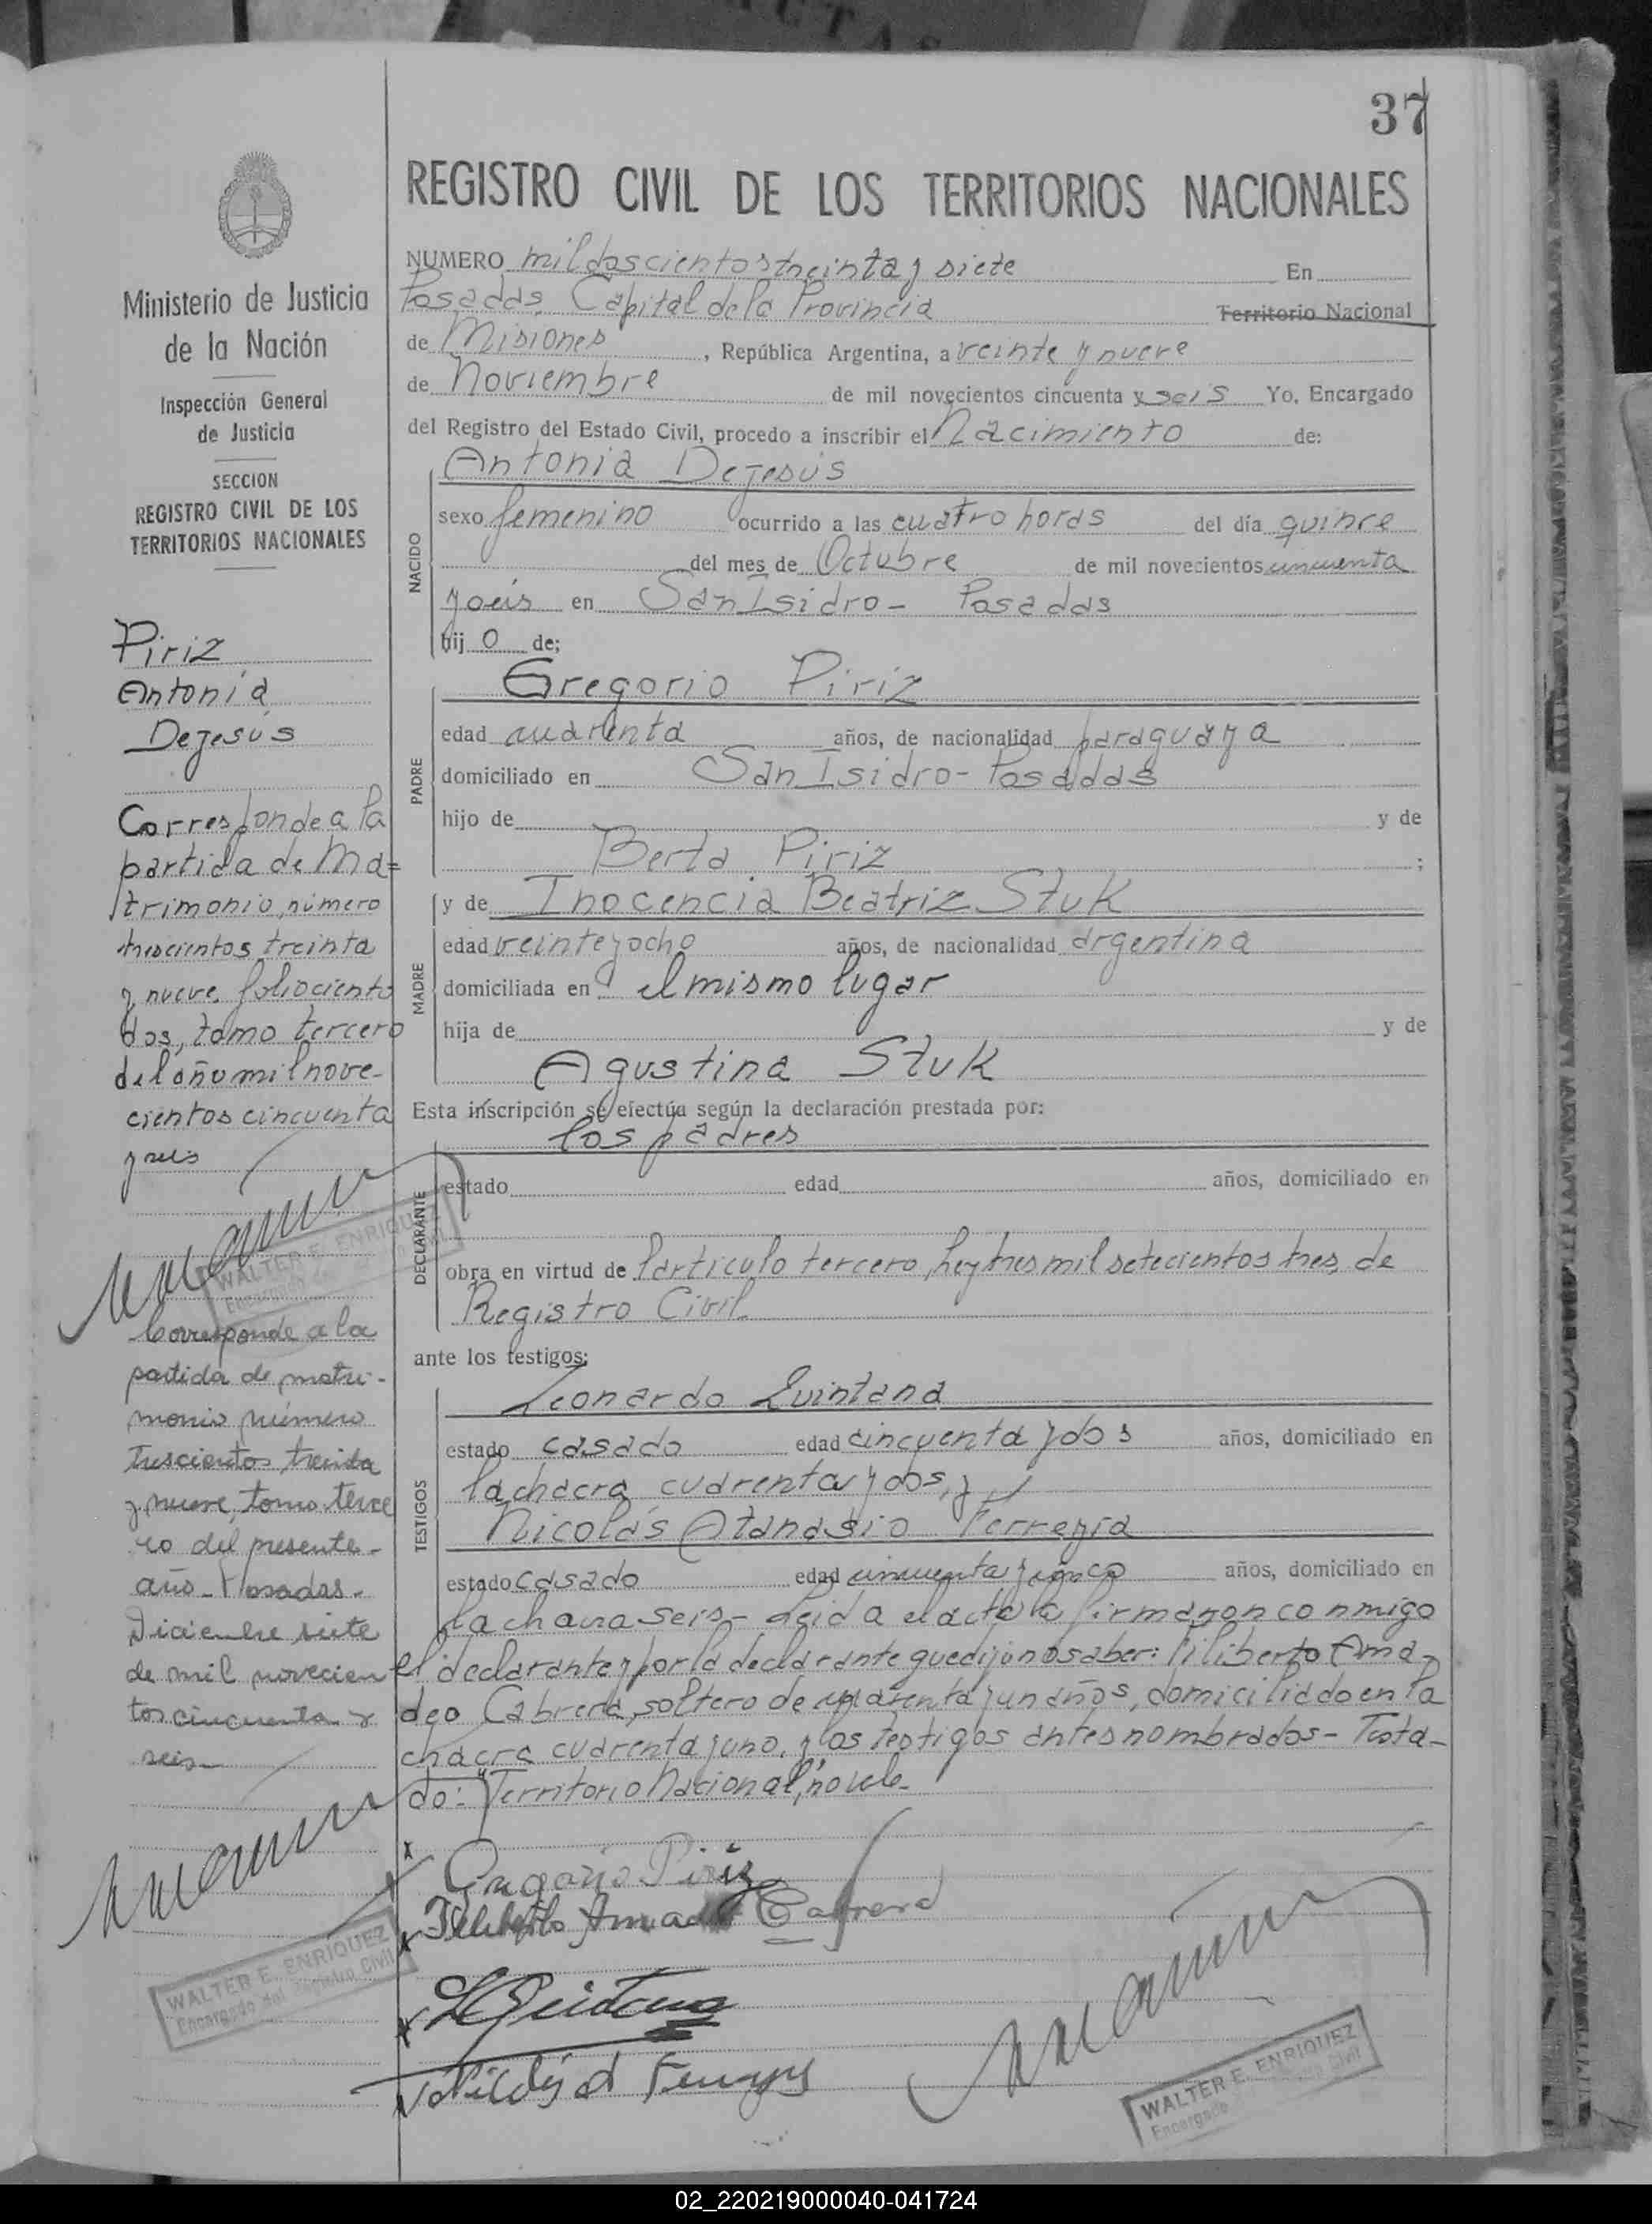 37
REGISTRO CIVIL DE LOS TERRITORIOS NACIONALES
Ministerio de Justicia
de la Nación
Inspección General
de Justicia
SECCION
REGISTRO CIVIL DE LOS
TERRITORIOS NACIONALES
Piriz
Antonia
Dejesús
Corresponde a la
partida de Ma=
trimonio, número
trescientos treinta
y nueve, folio ciento
dos, tomo tercero
del año mil nove-
cientos cincuenta
y seis
WALTER E. ENRIQUEZ
Corresponde a la
partida de matri-
monio número
Trescientos treinta
y nueve, tomo terce
ro del presente
año - Posadas -
Diciembre siete
de mil novecien
tos cincuenta y
seis
WALTER E. ENRIQUEZ
Encargado del Registro Civil
NUMERO mil doscientos treinta y siete En
Posadas, Capital de la Provincia Territorio Nacional
de Misiones, República Argentina, a veinte y nueve
de Noviembre de mil novecientos cincuenta y seis Yo. Encargado
del Registro del Estado Civil, procedo a inscribir el Nacimiento de:
NACIDO
Antonia Dejesús
sexo femenino ocurrido a las cuatro horas del día quince
del mes de Octubre de mil novecientos cincuenta
y seis en San Isidro - Posadas
hij o de;
PADRE
Gregorio Piriz
edad cuarenta años, de nacionalidad paraguaya
domiciliado en San Isidro - Posadas
hijo de y de
Berta Piriz ;
MADRE
y de Inocencia Beatriz Stuk
edad veinte y ocho años, de nacionalidad argentina
domiciliada en el mismo lugar
hija de y de
Agustina Stuk
Esta inscripción se efectúa según la declaración prestada por:
DECLARANTE
los padres
estado edad años, domiciliado en
obra en virtud de l'artículo tercero, ley tres mil setecientos tres, de
Registro Civil
ante los testigos:
TESTIGOS
Leonardo Quintana
estado casado edad cincuenta y dos años, domiciliado en
la chacra cuarenta y dos, y
Nicolás Atanasio Ferreyra
estado casado edad cincuenta y cinco años, domiciliado en
la chacra seis - Leida el acta la firmaron conmigo
el declarante y por la declarante que dijo no saber: Filiberto Ama-
deo Cabrera, soltero de cuarenta y un años, domiciliado en la
chacra cuarenta y uno, y los testigos antes nombrados - Testa-
do: "Territorio Nacional", no vale -
Gregorio Piriz
Filiberto Amadeo Cabrera
L Quintana
Nicolás A Ferreyra
WALTER E. ENRIQUEZ
Encargado Civil
02_220219000040-041724